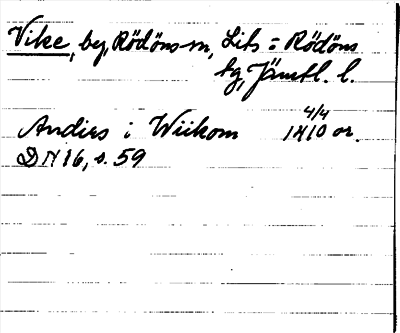 Vike, by, Rödöns sn, Lits = Rödöns
tg, Jämtl. l.
Andirs i Wiikom 4/4 1410 or.
DN 16, s. 59